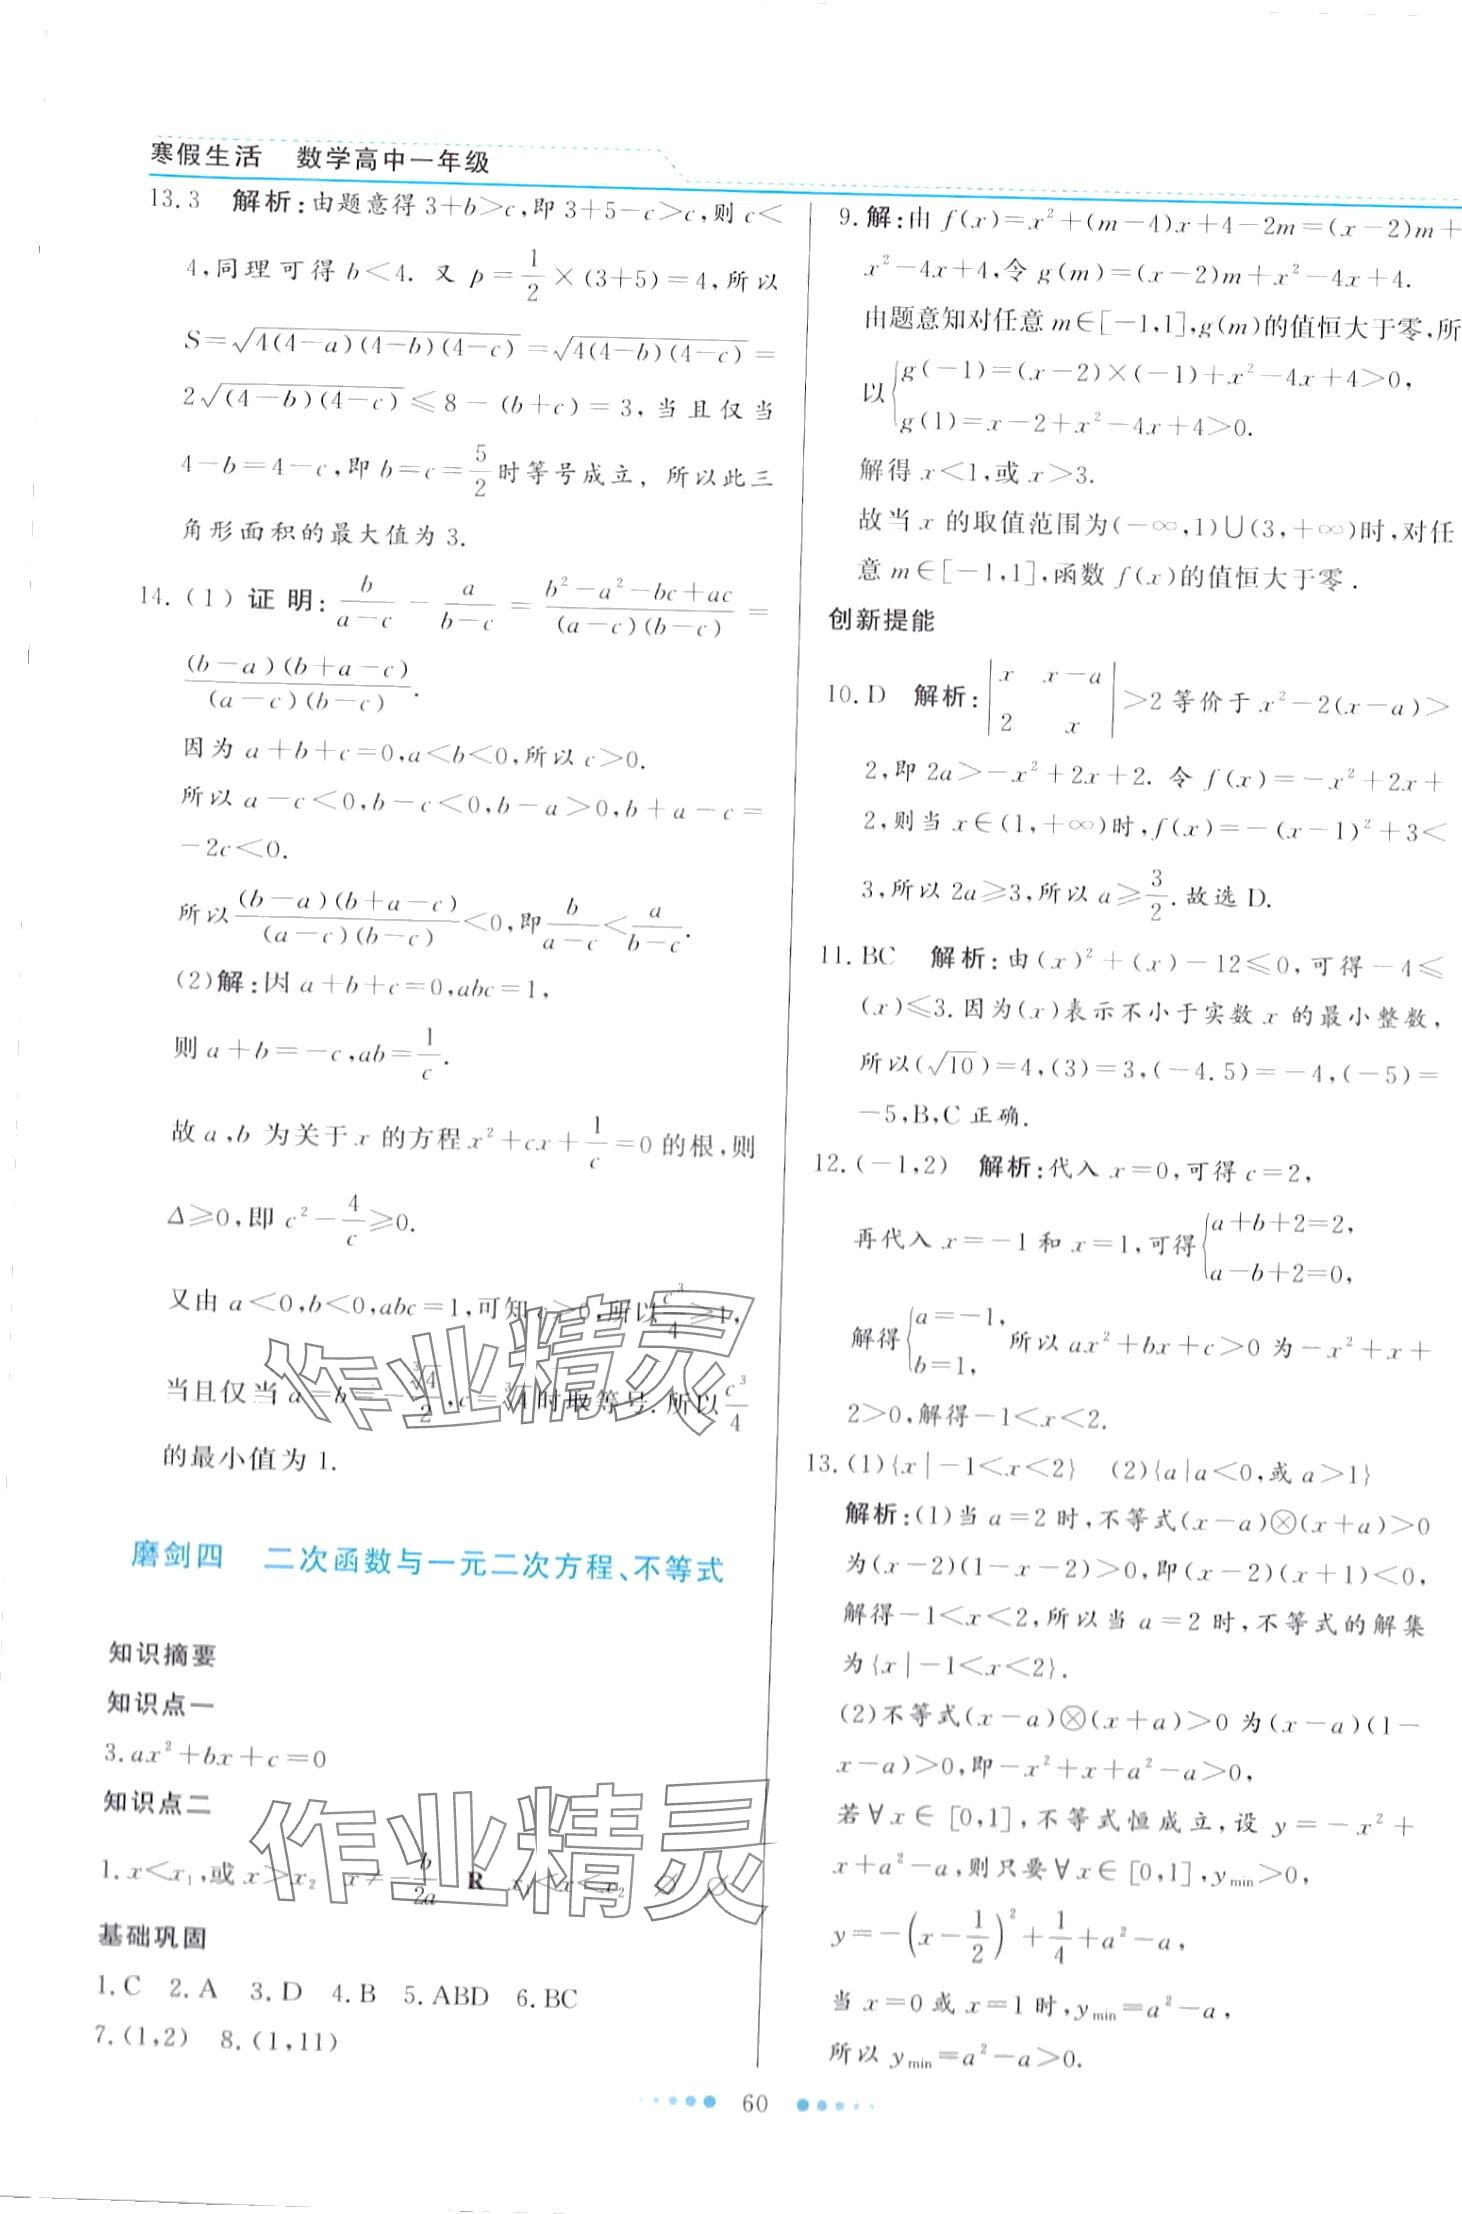 寒假生活　数学高中一年级
13.3　解析:由题意得 3+b>c,即 3+5-c>c,则 c<
4,同理可得 b<4. 又 p=\frac{1}{2}×(3+5)=4,所以
S=\sqrt{4(4-a)(4-b)(4-c)}=\sqrt{4(4-b)(4-c)}=
2\sqrt{(4-b)(4-c)}≤8-(b+c)=3,当且仅当
4-b=4-c,即 b=c=\frac{5}{2}时等号成立, 所以此三
角形面积的最大值为 3.
14.(1)证明:\frac{b}{a-c}-\frac{a}{b-c}=\frac{b²-a²-bc+ac}{(a-c)(b-c)}=
\frac{(b-a)(b+a-c)}{(a-c)(b-c)}.
因为 a+b+c=0,a<b<0,所以 c>0.
所以 a-c<0,b-c<0,b-a>0,b+a-c=
-2c<0.
所以\frac{(b-a)(b+a-c)}{(a-c)(b-c)}<0,即\frac{b}{a-c}<\frac{a}{b-c}.
(2)解:因 a+b+c=0,abc=1,
则 a+b=-c,ab=\frac{1}{c}.
故 a,b 为关于 x 的方程 x²+cx+\frac{1}{c}=0 的根,则
Δ≥0,即 c²-\frac{4}{c}≥0.
又由 a<0,b<0,abc=1,可知 c>0,所以\frac{c³}{4}≥1,
当且仅当 a=b=-\frac{\sqrt[3]{4}}{2},c=\sqrt[3]{4}时取等号.所以\frac{c³}{4}
的最小值为 1.
磨剑四　二次函数与一元二次方程、不等式
知识摘要
知识点一
3.ax²+bx+c=0
知识点二
1.x<x₁,或 x>x₂　x≠-\frac{b}{2a}　R　x₁<x<x₂　∅　∅
基础巩固
1.C　2.A　3.D　4.B　5.ABD　6.BC
7.(1,2)　8.(1,11)
9.解:由 f(x)=x²+(m-4)x+4-2m=(x-2)m+
x²-4x+4,令 g(m)=(x-2)m+x²-4x+4.
由题意知对任意 m∈[-1,1],g(m)的值恒大于零,所
以{g(-1)=(x-2)×(-1)+x²-4x+4>0,
g(1)=x-2+x²-4x+4>0.
解得 x<1,或 x>3.
故当 x 的取值范围为(-∞,1)∪(3,+∞)时,对任
意 m∈[-1,1],函数 f(x)的值恒大于零.
创新提能
10.D　解析:|x　x-a
2　x|>2 等价于 x²-2(x-a)>
2,即 2a>-x²+2x+2. 令 f(x)=-x²+2x+
2,则当 x∈(1,+∞)时,f(x)=-(x-1)²+3<
3,所以 2a≥3,所以 a≥\frac{3}{2}.故选 D.
11.BC　解析:由(x)²+(x)-12≤0,可得-4≤
(x)≤3.因为(x)表示不小于实数 x 的最小整数,
所以(\sqrt{10})=4,(3)=3,(-4.5)=-4,(-5)=
-5,B,C 正确.
12.(-1,2)　解析:代入 x=0,可得 c=2,
再代入 x=-1 和 x=1,可得{a+b+2=2,
a-b+2=0,
解得{a=-1,
b=1, 所以 ax²+bx+c>0 为-x²+x+
2>0,解得-1<x<2.
13.(1){x|-1<x<2}　(2){a|a<0,或 a>1}
解析:(1)当 a=2 时,不等式(x-a)⊗(x+a)>0
为(x-2)(1-x-2)>0,即(x-2)(x+1)<0,
解得-1<x<2,所以当 a=2 时,不等式的解集
为{x|-1<x<2}.
(2)不等式(x-a)⊗(x+a)>0 为(x-a)(1-
x-a)>0,即-x²+x+a²-a>0,
若∀x∈[0,1],不等式恒成立,设 y=-x²+
x+a²-a,则只要∀x∈[0,1],y_{min}>0,
y=-(x-\frac{1}{2})²+\frac{1}{4}+a²-a,
当 x=0 或 x=1 时,y_{min}=a²-a,
所以 y_{min}=a²-a>0.
60
作业精灵
作业精灵